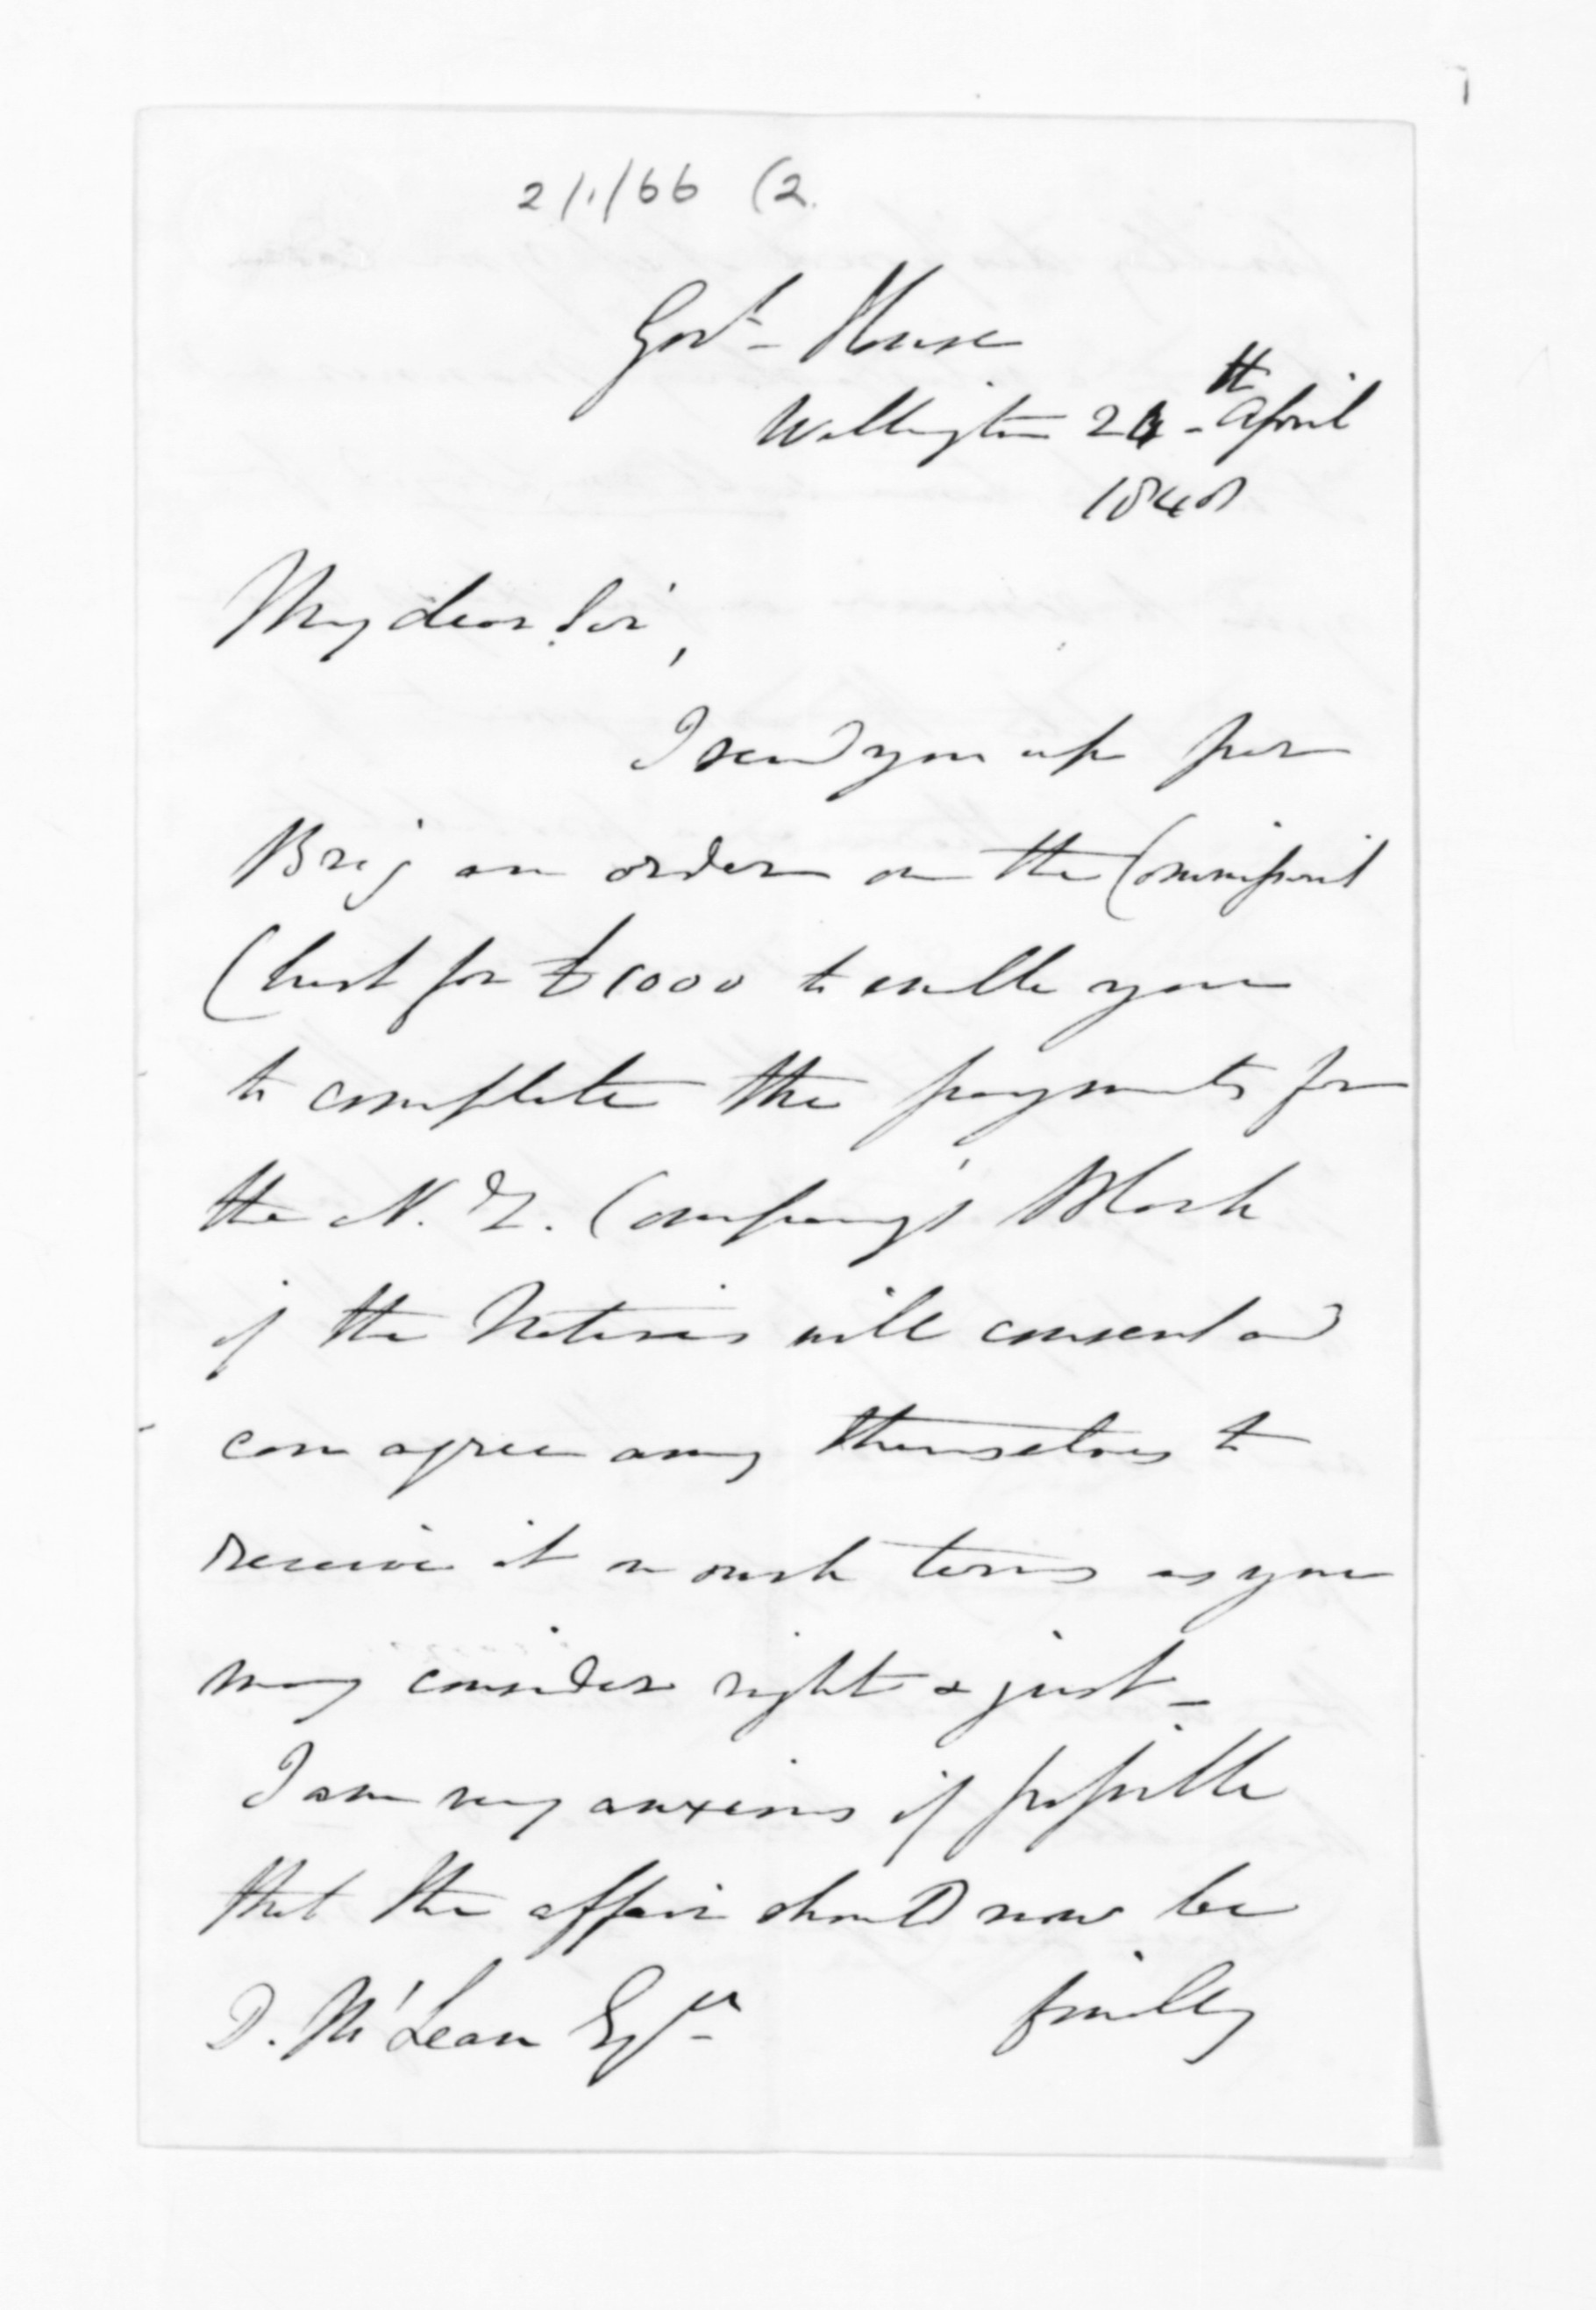 2/1/66 (2.
Govt. House
Wellington 24th April
1848
My dear Sir,
I send you up per
Brig an order on the Commissariat
Chest for £1000 to enable you
to complete the payments for
the N. Z. Company's Block
if the Natives will consent and
can agree among themselves to
receive it on such terms as you
may consider right & just -
I am very anxious if possible
that the affair should now be
D. McLean Esqre finally